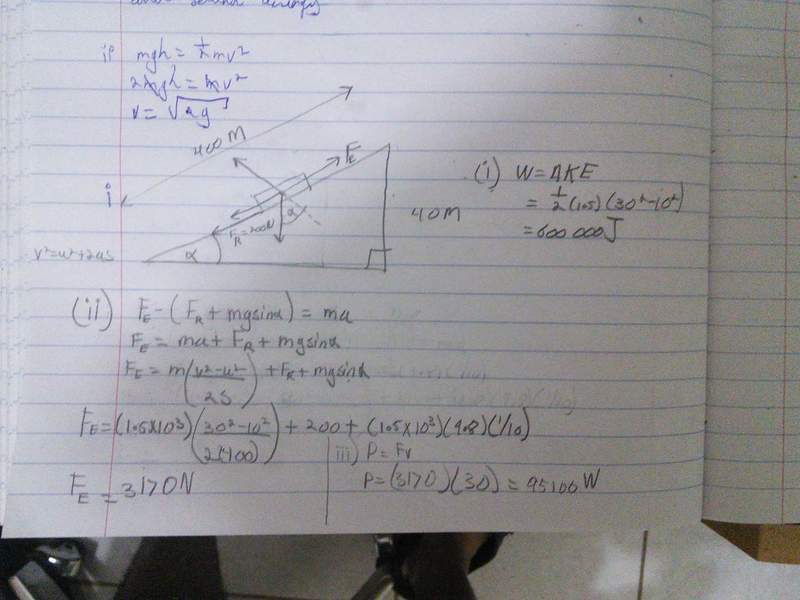 ii mgh = 1/2 mv²
2mgh = mv²
v = √2g
400M
F_E
i
F_R = 200N
α
α
40M
v²=u²+2as
(i) W = ΔKE
= 1/2 (1.05)(30²-10²)
= 600 000J
(ii) F_E - (F_R + mgsinα) = ma
F_E = ma + F_R + mgsinα
F_E = m((v²-u²)/2S) + F_R + mgsinα
F_E = (1.5×10³)((30²-10²)/2(400)) + 200 + (1.5×10³)(9.8)(1/10)
F_E = 3170N
iii) P = Fv
P = (3170)(30) = 95100 W